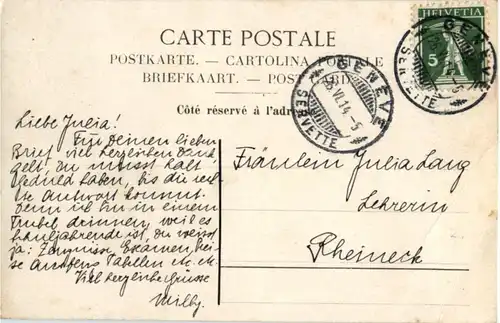 CARTE POSTALE
POSTKARTE. — CARTOLINA POSTALE
BRIEFKAART. — POST CARD
Côté réservé à l'adresse
HELVETIA
5
GENÈVE
SERVETTE
GENÈVE
VI.14.-5
SERVETTE
Liebe Julia!
Für Deinen lieben
Brief viel herzlichen Dank
gelt, Du musst halt
Geduld haben, bis die rech-
te Antwort kommt.
Denn ich bin in einem
Trubel drinnen, weil es
Schuljahrende ist, Du weisst
ja: Zeugnisse, Examen,
Tabellen etc. etc.
Viel herzliche Grüsse
Milly.
Fräulein Julia Lang
Lehrerin
Rheineck